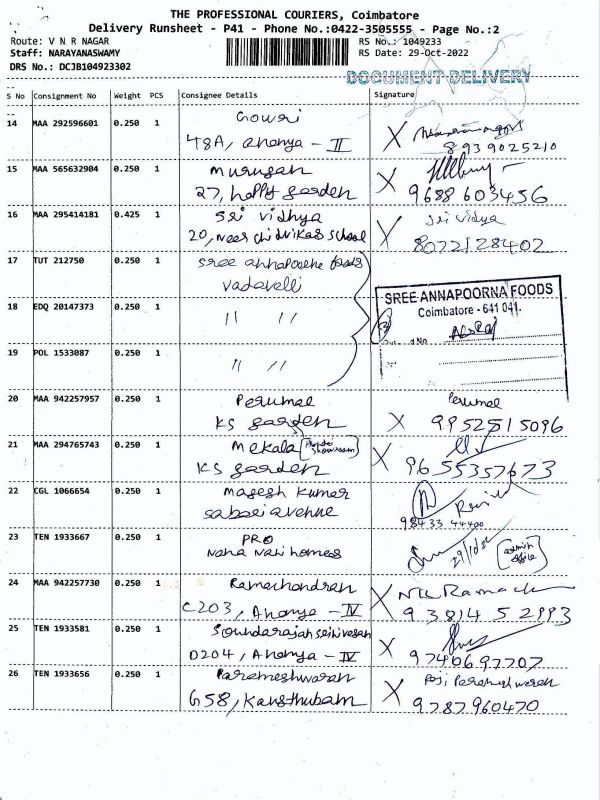 THE PROFESSIONAL COURIERS, Coimbatore
Delivery Runsheet - P41 - Phone No.:0422-3505555 - Page No.:2
Route: V N R NAGAR RS No.: 1049233
Staff: NARAYANASWAMY RS Date: 29-Oct-2022
DRS No.: DCJB104923302
DOCUMENT DELIVERY
S No Consignment No Weight PCS Consignee Details Signature
14 MAA 292596601 0.250 1 Gowri
48A, Ananya - II 8939025210
15 MAA 565632904 0.250 1 Murugan
27, happy garden 9688603456
16 MAA 295414181 0.425 1 Sri Vidhya Sri Vidya
20, Near Chidvikas School 8072128402
17 TUT 212750 0.250 1 Sree annapoorne foods
Vadavalli
SREE ANNAPOORNA FOODS
Coimbatore - 641 041.
18 EDQ 20147373 0.250 1 " "
19 POL 1533087 0.250 1 " "
20 MAA 942257957 0.250 1 Perumal Perumal
KS garden 9952815096
21 MAA 294765743 0.250 1 Mekala
KS garden 9655357673
22 CGL 1066654 0.250 1 Magesh Kumar
Sabari avenue 98433 44400
23 TEN 1933667 0.250 1 PRO
Nana Nani homes
admin office
24 MAA 942257730 0.250 1 Ramachandran
C203, Ananya - IV 93814 52993
25 TEN 1933581 0.250 1 Soundarajan Srinivasan
D204, Ananya - IV 9740697707
26 TEN 1933656 0.250 1 Parameshwaran
G58, Kousthubam 9787960470